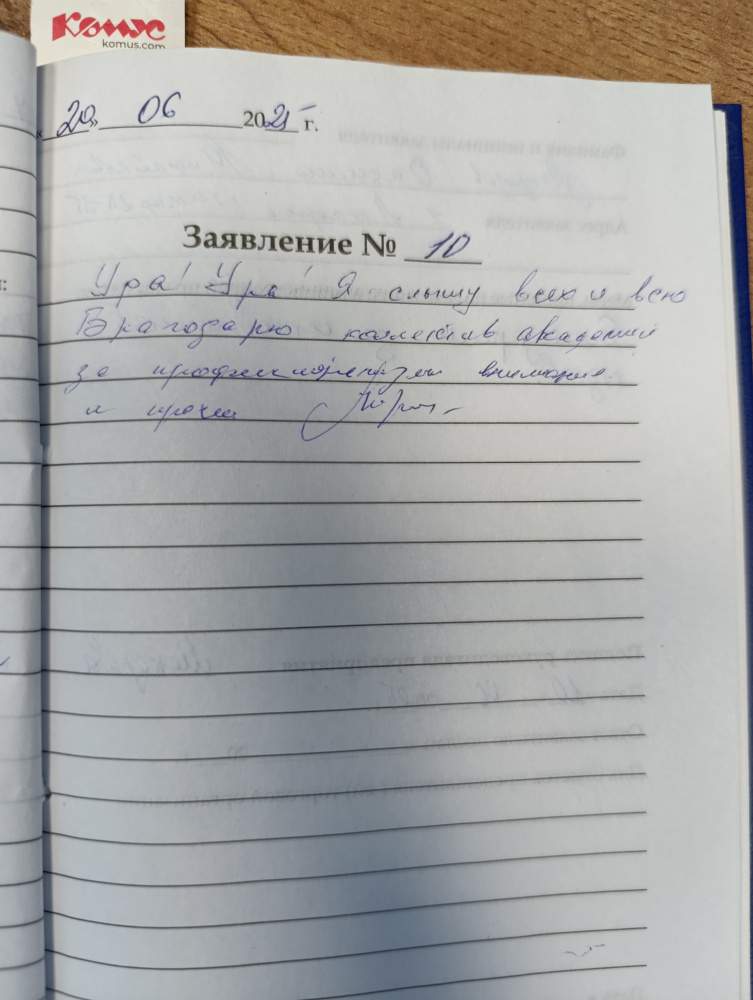 Комус
komus.com
« 20 » 06 2025 г.
Заявление № 10
Ура! Ура! Я слышу всех и всю
Благодарю коллектив академии
за внимание
и